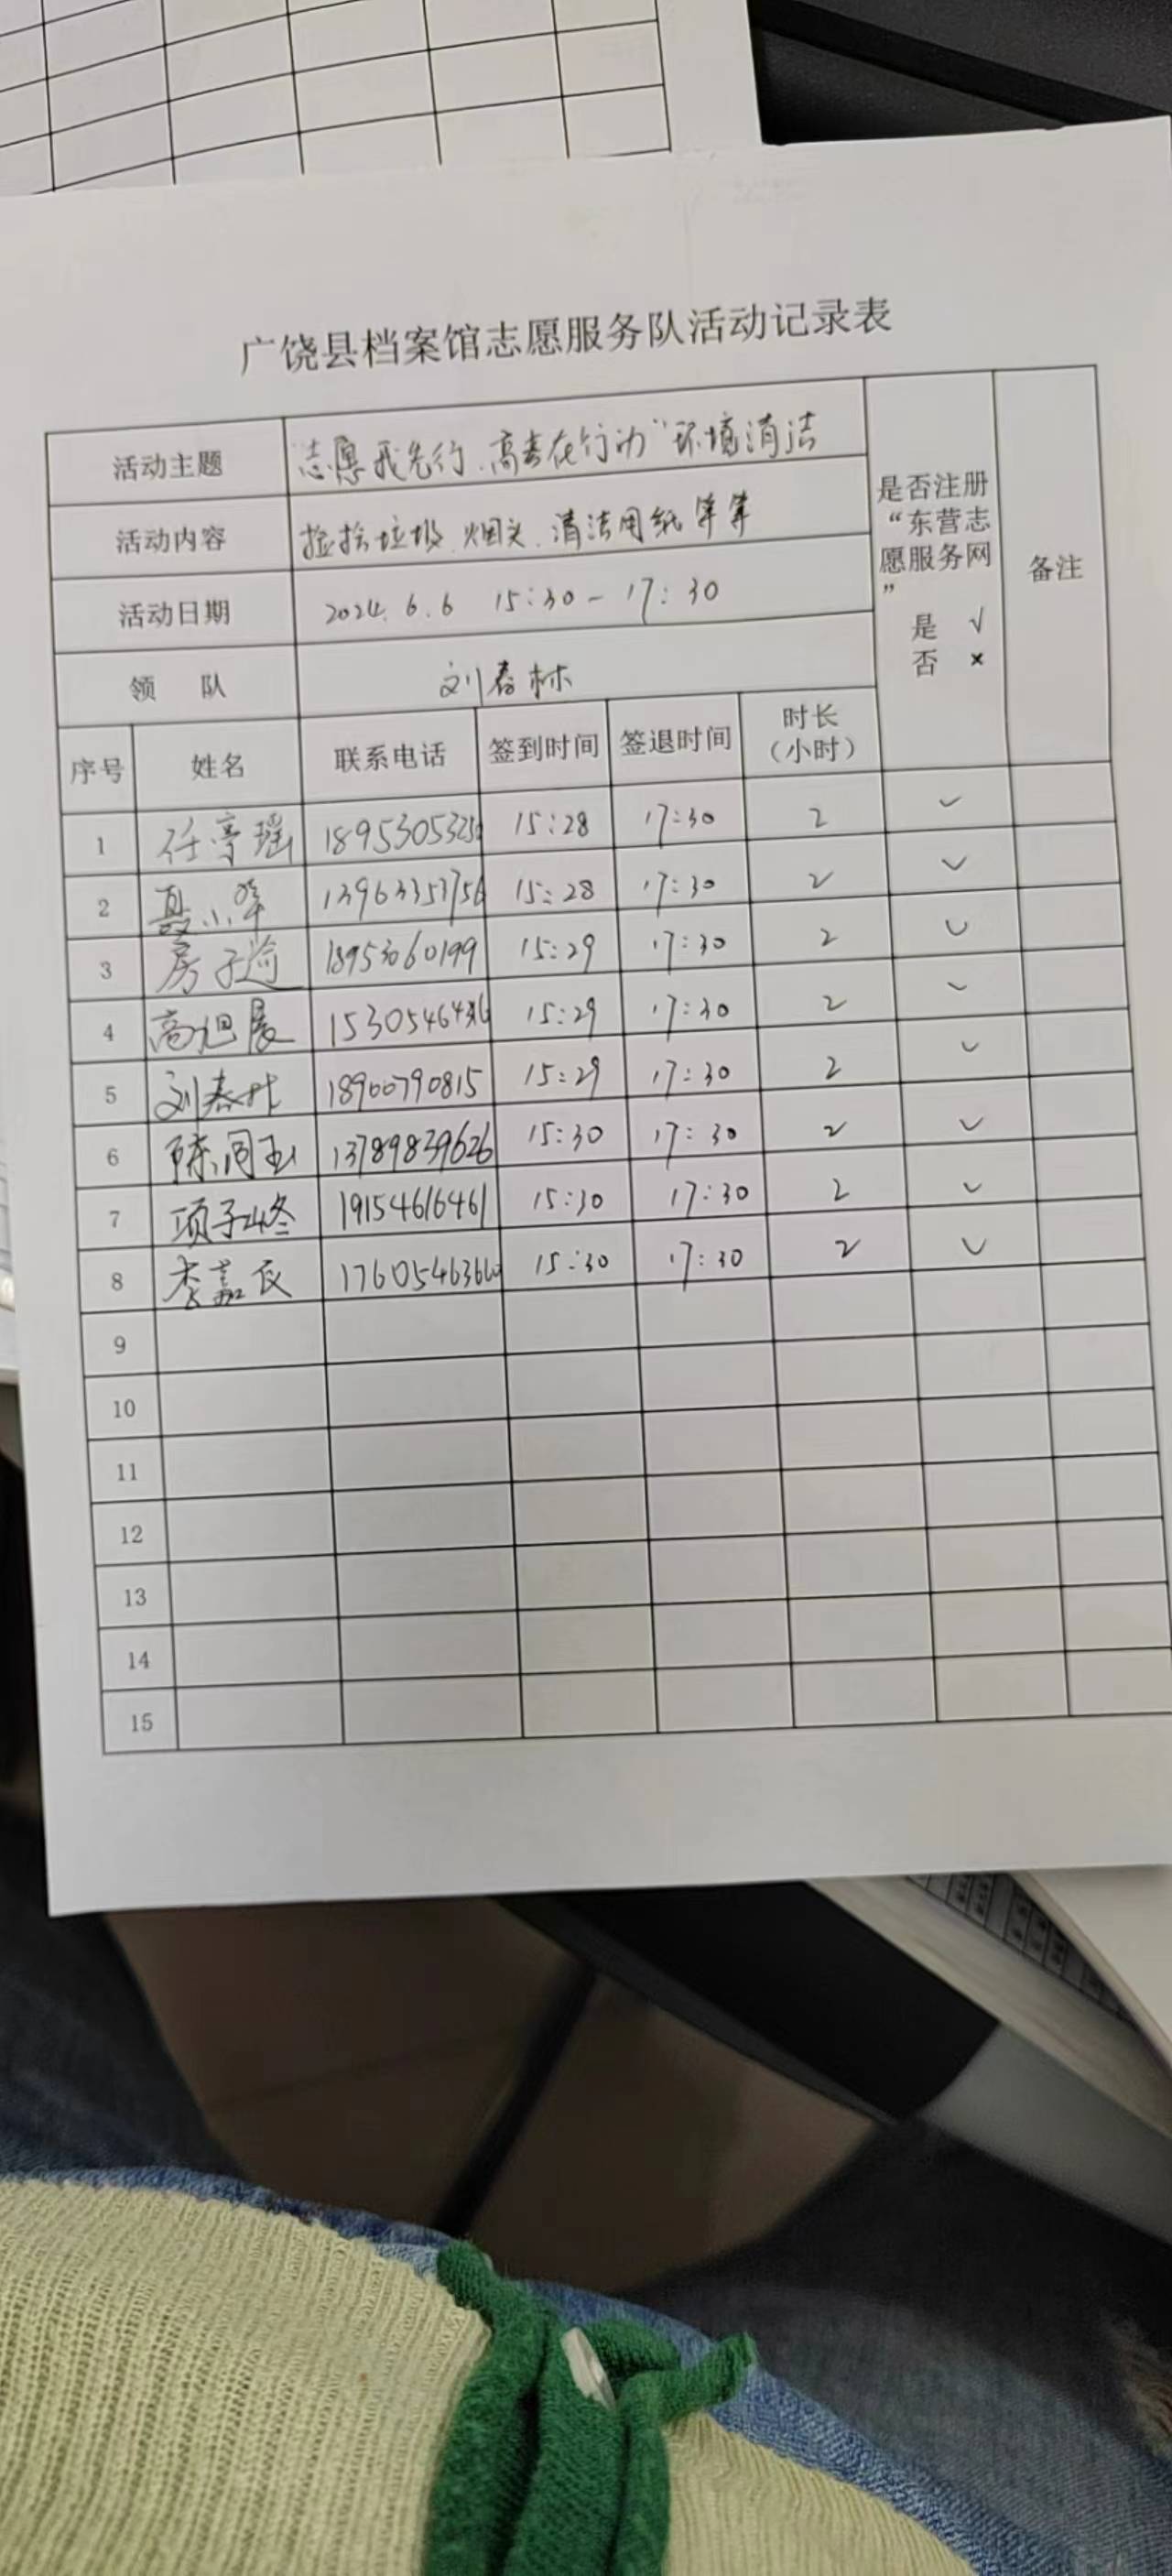 广饶县档案馆志愿服务队活动记录表
活动主题 “志愿我先行、高考在行动”环境清洁
活动内容 捡拾垃圾、烟头、清洁用纸等等
活动日期 2024.6.6 15:30-17:30
领 队 刘春林
是否注册
“东营志
愿服务网
”
是 √
否 ×
备注
序号 姓名 联系电话 签到时间 签退时间 时长
（小时）
1 任亭瑶 15:28 17:30 2 ✓
2 聂小华 15:28 17:30 2 ✓
3 房子逾 18953060199 15:29 17:30 2 ✓
4 高旭晨 15:29 17:30 2 ✓
5 刘春林 18900790815 15:29 17:30 2 ✓
6 13789839626 15:30 17:30 2 ✓
7 项子峰 19154616461 15:30 17:30 2 ✓
8 李嘉 15:30 17:30 2 ✓
9
10
11
12
13
14
15